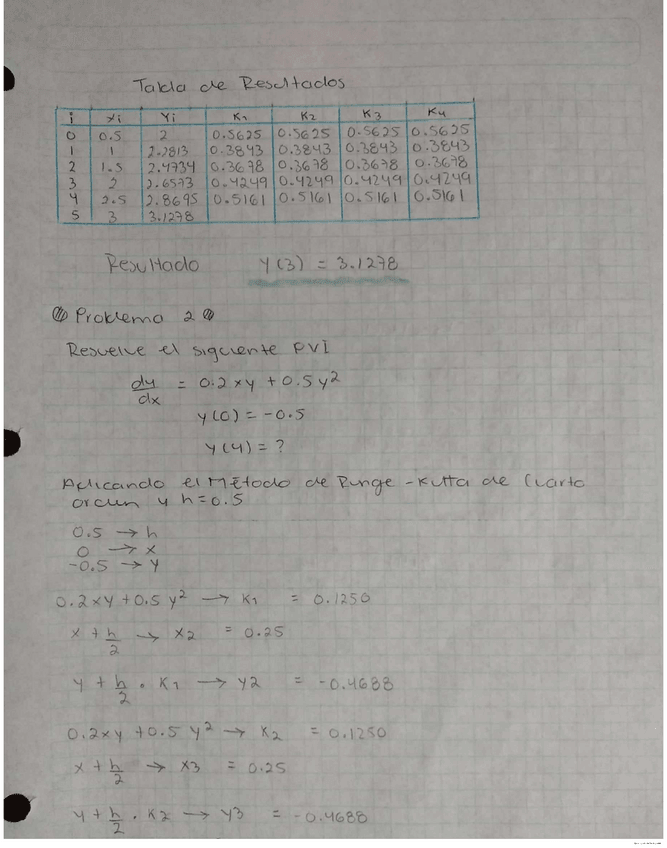 Tabla de Resultados
i xi Yi K1 K2 K3 K4
0 0.5 2 0.5625 0.5625 0.5625 0.5625
1 1 2.2813 0.3843 0.3843 0.3843 0.3843
2 1.5 2.4734 0.3678 0.3678 0.3678 0.3678
3 2 2.6573 0.4249 0.4249 0.4249 0.4249
4 2.5 2.8695 0.5161 0.5161 0.5161 0.5161
5 3 3.1278
Resultado Y(3) = 3.1278
Problema 2
Resuelve el siguiente PVI
dy/dx = 0.2xy + 0.5y²
y(0) = -0.5
y(4) = ?
Aplicando el Método de Runge-Kutta de Cuarto
orden y h=0.5
0.5 → h
0 → x
-0.5 → y
0.2xy + 0.5y² → K1 = 0.1250
x + h/2 → x2 = 0.25
y + h/2 · K1 → y2 = -0.4688
0.2xy + 0.5y² → K2 = 0.1250
x + h/2 → x3 = 0.25
y + h/2 · K2 → y3 = -0.4688